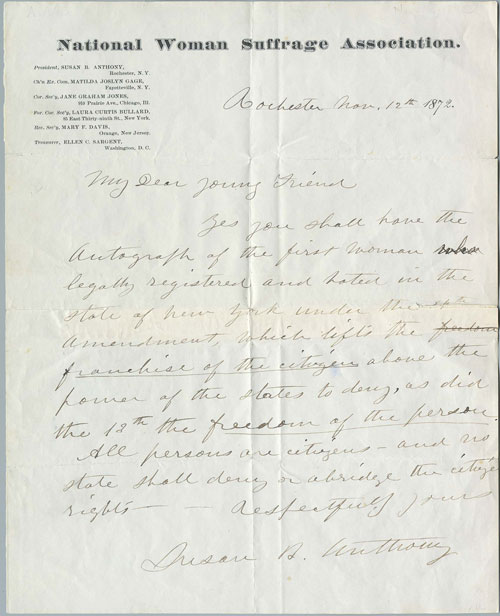 National Woman Suffrage Association.
President, SUSAN B. ANTHONY,
Rochester, N. Y.
Ch'n Ex. Com. MATILDA JOSLYN GAGE,
Fayetteville, N. Y.
Cor. Sec'y, JANE GRAHAM JONES,
910 Prairie Ave., Chicago, Ill.
For. Cor. Sec'y, LAURA CURTIS BULLARD,
85 East Thirty-ninth St., New York.
Rec. Sec'y, MARY F. DAVIS,
Orange, New Jersey.
Treasurer, ELLEN C. SARGENT,
Washington, D. C.
Rochester Nov. 12th 1872.
My Dear young Friend
Yes you shall have the
Autograph of the first woman who
legally registered and voted in the
state of New York under the
Amendment, which lifts the freedom
franchise of the citizen above the
power of the states to deny, as did
the 13th the freedom of the person.
All persons are citizens – and no
state shall deny or abridge the citizen
rights –– Respectfully yours
Susan B. Anthony